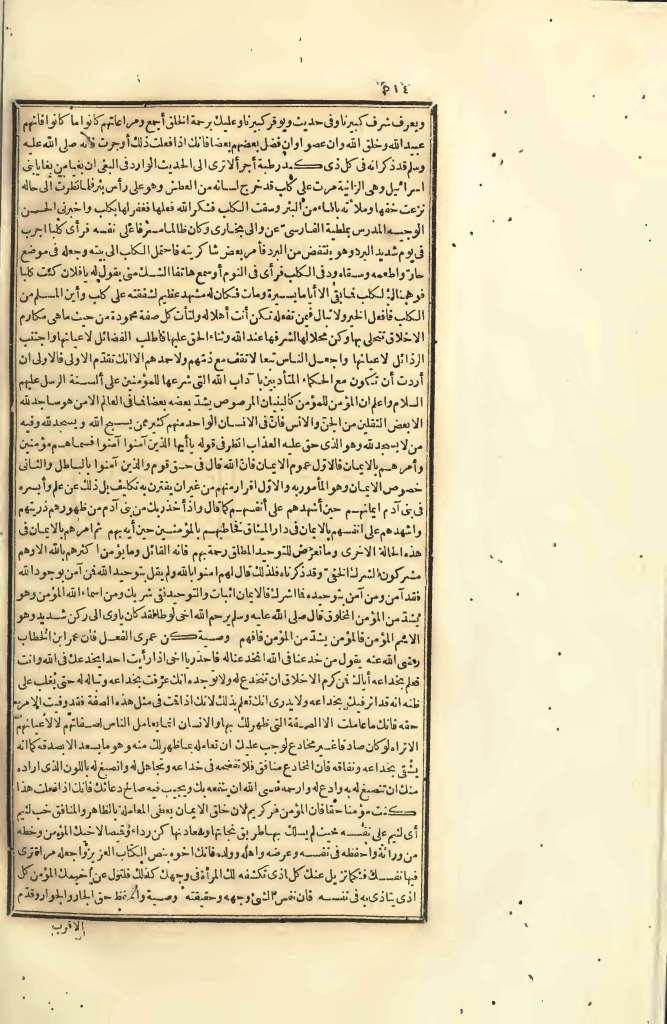 ٥١٤
ويعرف شرف كبيرنا وفى حديث ويوقر كبيرنا وعليك برحمة الخلق أجمع ومراعاتهم كانوا ما كانوا فانهم
عبيد الله وخلق الله وان عصوا وان فضل بعضهم بعضا فانك اذا فعلت ذلك أوجرت فانه صلى الله عليه
وسلم قد ذكر انه فى كل ذى كبد رطبة أجر ألا ترى الى الحديث الوارد فى البغى ان بغيا من بغايا بنى
اسرائيل وهى الزانية مرت على كلب قد خرج لسانه من العطش وهو على رأس بئر فلما نظرت الى حاله
نزعت خفها وملأته بالماء من البئر وسقت الكلب فشكر الله فعلها فغفر لها بكلب وأخبرنى الحسن
الوجيه المدرس بملطية الفارسى عن والى بخارى وكان ظالما مسرفا على نفسه فرأى كلبا أجرب
فى يوم شديد البرد وهو ينتفض من البرد فأمر بعض شاكريته فاحتمل الكلب الى بيته وجعله فى موضع
حار وأطعمه وسقاه ودفى الكلب فرأى فى النوم أو سمع هاتفا الشك منى يقول له يا فلان كنت كلبا
فوهبناك لكلب فما بقى الا أياما يسيرة ومات فكان له مشهد عظيم لشفقته على كلب وأين المسلم من
الكلب فافعل الخير ولا تبال فيمن تفعله تكن أنت أهلا له ولتأت كل صفة محمودة من حيث ماهى مكارم
الاخلاق تتحلى بها وكن محلا لها لشرفها عند الله وثناء الحق عليها فاطلب الفضائل لاعيانها واجتنب
الرذائل لاعيانها واجعل الناس تبعا لا تقف مع ذمهم ولا حمدهم الا انك تقدم الاولى فالاولى ان
أردت أن تكون مع الحكماء المتأدبين باآداب الله التى شرعها للمؤمنين على ألسنة الرسل عليهم
السلام واعلم ان المؤمن للمؤمن كالبنيان المرصوص يشد بعضه بعضا فما فى العالم الا من هو ساجد لله
الا بعض الثقلين من الجن والانس فان فى الانسان الواحد منهم كثير ممن يسبح الله ويسجد لله وفيه
من لا يسجد لله وهو الذى حق عليه العذاب انظر فى قوله يا أيها الذين آمنوا آمنوا فسماهم مؤمنين
وأمرهم بالايمان فالاول عموم الايمان فان الله قال فى حق قوم والذين آمنوا بالباطل والثانى
خصوص الايمان وهو المأمور به والاول اقرار منهم من غير أن يقترن به تكليف بل ذلك عن علم وأيسره
فى بنى آدم ايمانهم حين أشهدهم على أنفسهم كما قال واذ أخذ ربك من بنى آدم من ظهورهم ذريتهم
وأشهدهم على أنفسهم بالايمان فى دار الميثاق فخاطبهم بالمؤمنين حين أيه بهم ثم أمرهم بالايمان فى
هذه الحالة الاخرى وما تعرض للتوحيد المطلق رحمة بهم فانه القائل وما يؤمن أكثرهم بالله الا وهم
مشركون الشرك الخفى وقد ذكرناه فلذلك قال لهم آمنوا بالله ولم يقل بتوحيد الله فمن آمن بوجود الله
فقد آمن ومن آمن بتوحيده فما أشرك فالايمان اثبات والتوحيد نفى شريك ومن أسماء الله المؤمن وهو
يشد من المؤمن المخلوق قال صلى الله عليه وسلم يرحم الله أخى لوطا لقد كان يأوى الى ركن شديد وهو
الاسم المؤمن فالمؤمن يشد من المؤمن فافهم وصية كن عمرى الفعل فان عمر ابن الخطاب
رضى الله عنه يقول من خدعنا فى الله انخدعنا له فاحذر يا أخى اذا رأيت أحدا يخدعك فى الله وانت
تعلم بخداعه أياك فمن كرم الاخلاق ان تنخدع له ولا توجده انك عرفت بخداعه وتباله له حتى يغلب على
ظنه انه قد أثر فيك بخداعه ولا يدرى انك تعلم بذلك لانك اذا قمت فى مثل هذه الصفة فقد وفيت الامر
حقه فانك ما عاملت الا الصفة التى ظهر لك بها والانسان انما يعامل الناس لصفاتهم لا لأعيانهم
الا تراه لو كان صادقا غير مخادع لوجب عليك ان تعامله بما ظهر لك منه وهو ما يسعد الا بصدقه كما انه
يشقى بخداعه ونفاقه فان المخادع منافق فلا تفضحه فى خداعه وتجاهل له وانصبغ له باللون الذى أراده
منك ان تنصبغ له به وادع له وارحمه فعسى الله ان ينفعه بك ويجيب فيه صالح دعائك فانك اذا فعلت هذا
كنت مؤمنا حقا فان المؤمن غر كريم لان خلق الايمان يعطى المعاملة بالظاهر والمنافق خب لئيم
أى لئيم على نفسه حيث لم يسلك بها طريق نجاتها وسعادتها كن رداء وقميصا لاخيك المؤمن وحطه
من ورائه واحفظه فى نفسه وعرضه وأهله وولده فانك أخوه بنص الكتاب العزيز واجعله مرآة ترى
فيها نفسك فكما تزيل عنك كل أذى تكشفه لك المرآة فى وجهك كذلك فلتزل عن أخيك المؤمن كل
أذى يتأذى به فى نفسه فان نفس الشئ وجهه وحقيقته وصية واحفظ حق الجار والجوار وقدم
الاقرب